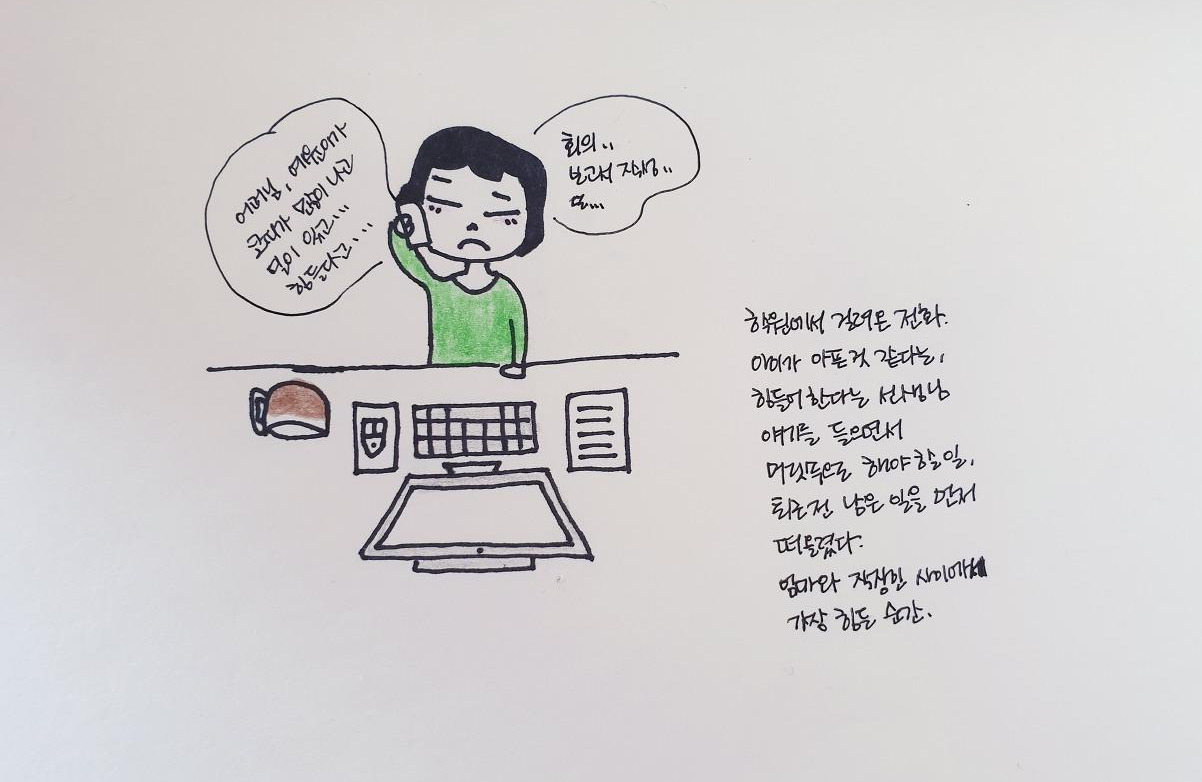 어머님, 여유와가
코피가 많이 나고
열이 있고...
힘들다고....
회의..
보고서 작성..
또...
학원에서 걸려온 전화.
아이가 아픈것 같다는,
힘들어한다는 선생님
얘기를 들으면서
머릿속으로 해야할 일,
퇴근전 남은 일을 먼저
떠올렸다.
엄마와 직장인 사이에서
가장 힘든 순간.